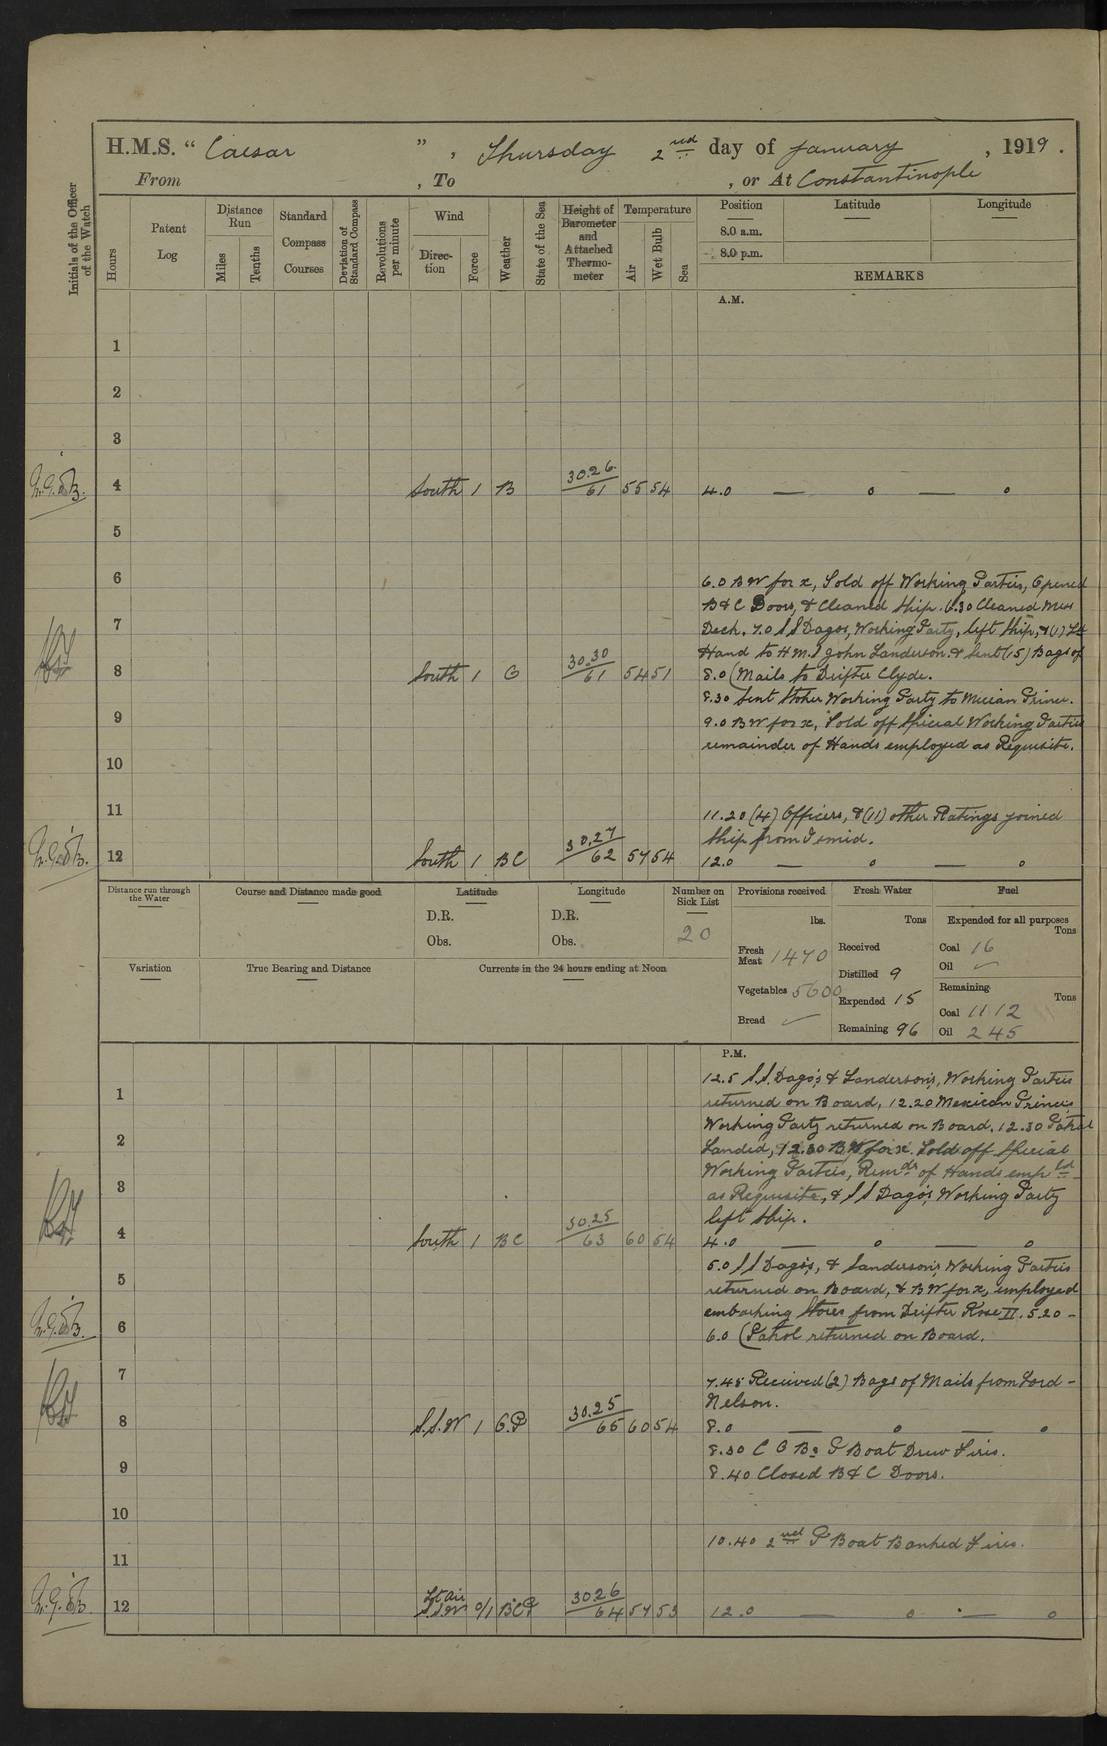 H.M.S. " Caesar " , Thursday 2nd day of January , 1919 .
From , To , or At Constantinople
Initials of the Officer of the Watch
Hours
Patent Log
Distance Run
Miles
Tenths
Standard Compass Courses
Deviation of Standard Compass
Revolutions per minute
Wind
Direction
Force
Weather
State of the Sea
Height of Barometer and Attached Thermometer
Temperature
Air
Wet Bulb
Sea
Position Latitude Longitude
8.0 a.m.
8.0 p.m.
REMARKS
A.M.
1
2
3
4 South 1 B 30.26/61 55 54 4.0 — o — o
5
6 6.0 BW for x, Told off Working Parties, Opened
B & C Doors, & Cleaned Ship. 6.30 Cleaned Mess
7 Deck. 7.0 SS Dagos, Working Party, left ship, & (1) Lt
Hand to H.M.S John Sanderson. & Sent (15) Bags of
8 South 1 C 30.30/61 54 51 8.0 (Mails to Drifter Clyde.
8.30 Sent Stoker Working Party to Mexican Prince.
9 9.0 BW for x, Told off Special Working Parties
remainder of Hands employed as Requisite.
10
11 11.20 (4) Officers, & (11) other Ratings joined
Ship from Ismid.
12 South 1 BC 30.27/62 57 54 12.0 — o — o
Distance run through the Water
Course and Distance made good
Latitude
D.R.
Obs.
Longitude
D.R.
Obs.
Number on Sick List
20
Provisions received
lbs.
Fresh Meat 1470
Vegetables 5600
Bread ✓
Fresh Water
Tons
Received
Distilled 9
Expended 15
Remaining 96
Fuel
Expended for all purposes
Tons
Coal 16
Oil ✓
Remaining
Tons
Coal 1112
Oil 245
Variation
True Bearing and Distance
Currents in the 24 hours ending at Noon
P.M.
12.5 S.S. Dago's & Sanderson's, Working Parties
1 returned on Board, 12.20 Mexican Prince's
Working Party returned on Board. 12.30 Patrol
2 Landed, 12.30 BW for x. Told off Special
Working Parties, Remdr of Hands empld
3 as Requisite, & SS Dago's Working Party
left ship.
4 South 1 BC 30.25/63 60 54 4.0 — o — o
5 5.0 SS Dago's, & Sanderson's Working Parties
returned on Board, & BW for x, employed
embarking Stores from Drifter Rose II. 5.20 –
6 6.0 (Patrol returned on Board.
7 7.45 Received (2) Bags of Mails from Lord –
Nelson.
8 S.S.W 1 C.P 30.25/65 60 54 8.0 — o — o
8.30 P Boat Drew Fires.
9 8.40 Closed B & C Doors.
10
10.40 2nd P Boat Banked Fires.
11
12 Lt air S.S.W 0/1 BCP 30.26/64 57 53 12.0 — o — o